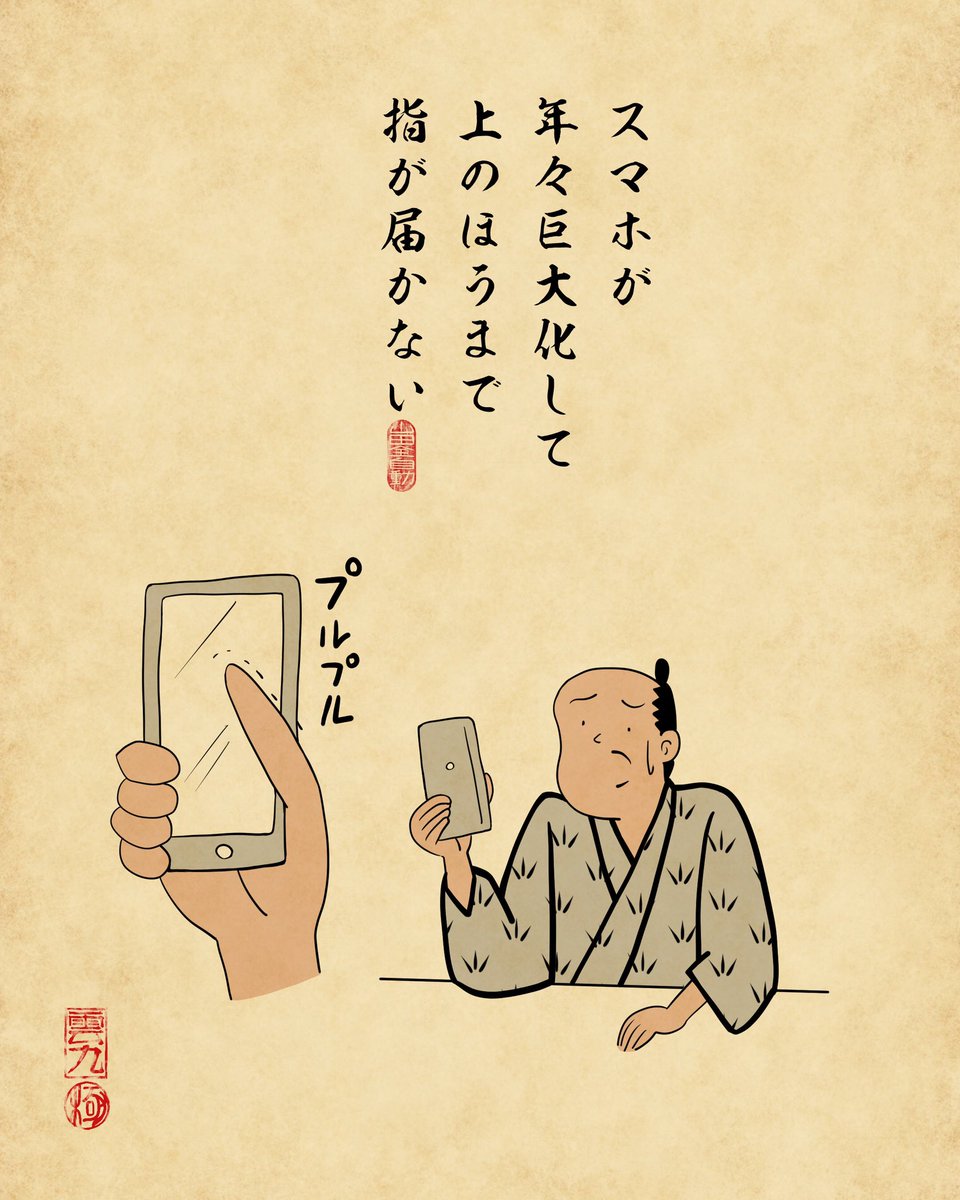 スマホが
年々巨大化して
上のほうまで
指が届かない
プルプル